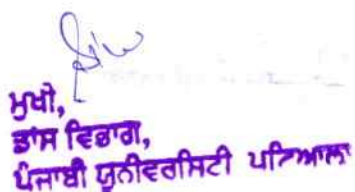 ਮੁਖੀ,
ਡਾਂਸ ਵਿਭਾਗ,
ਪੰਜਾਬੀ ਯੂਨੀਵਰਸਿਟੀ ਪਟਿਆਲਾ